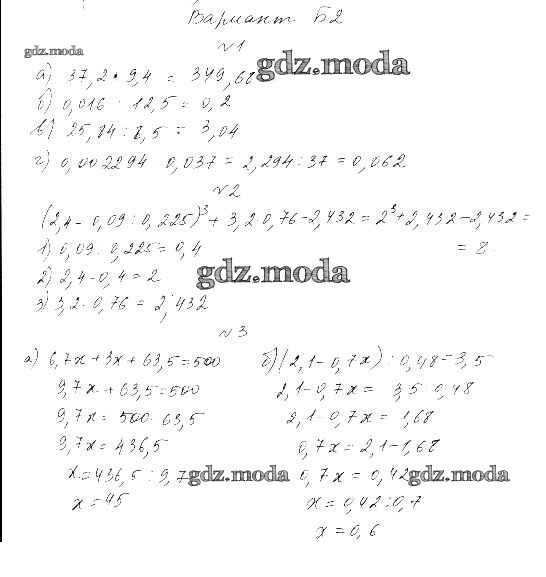 Вариант Б2
№1
gdz.moda
gdz.moda
а) 37,2 · 9,4 = 349,68
б) 0,016 · 12,5 = 0,2
в) 25,84 : 8,5 = 3,04
г) 0,002294 0,037 = 2,294 : 37 = 0,062
№2
(2,4 - 0,09 : 0,225)³ + 3,2 · 0,76 - 2,432 = 2³ + 2,432 - 2,432 =
= 8
1) 0,09 : 0,225 = 0,4
2) 2,4 - 0,4 = 2
gdz.moda
3) 3,2 · 0,76 = 2,432
№3
а) 6,7х + 3х + 63,5 = 500
9,7х + 63,5 = 500
9,7х = 500 63,5
9,7х = 436,5
х = 436,5 : 9,7
gdz.moda
х = 45
б) (2,1 - 0,7х) : 0,48 = 3,5
2,1 - 0,7х = 3,5 · 0,48
2,1 - 0,7х = 1,68
0,7х = 2,1 - 1,68
0,7х = 0,42
gdz.moda
х = 0,42 : 0,7
х = 0,6